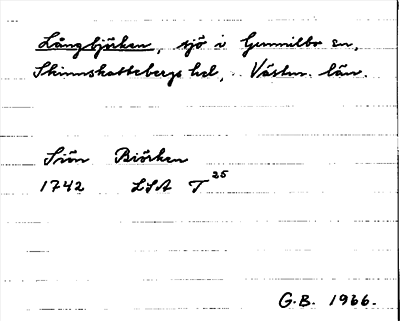 Långbjörken, sjö i Gunnilbo sn,
Skinnskattebergs hd, Västm. län.
Siön Biörken
1742 LSA T 25
G.B. 1966.